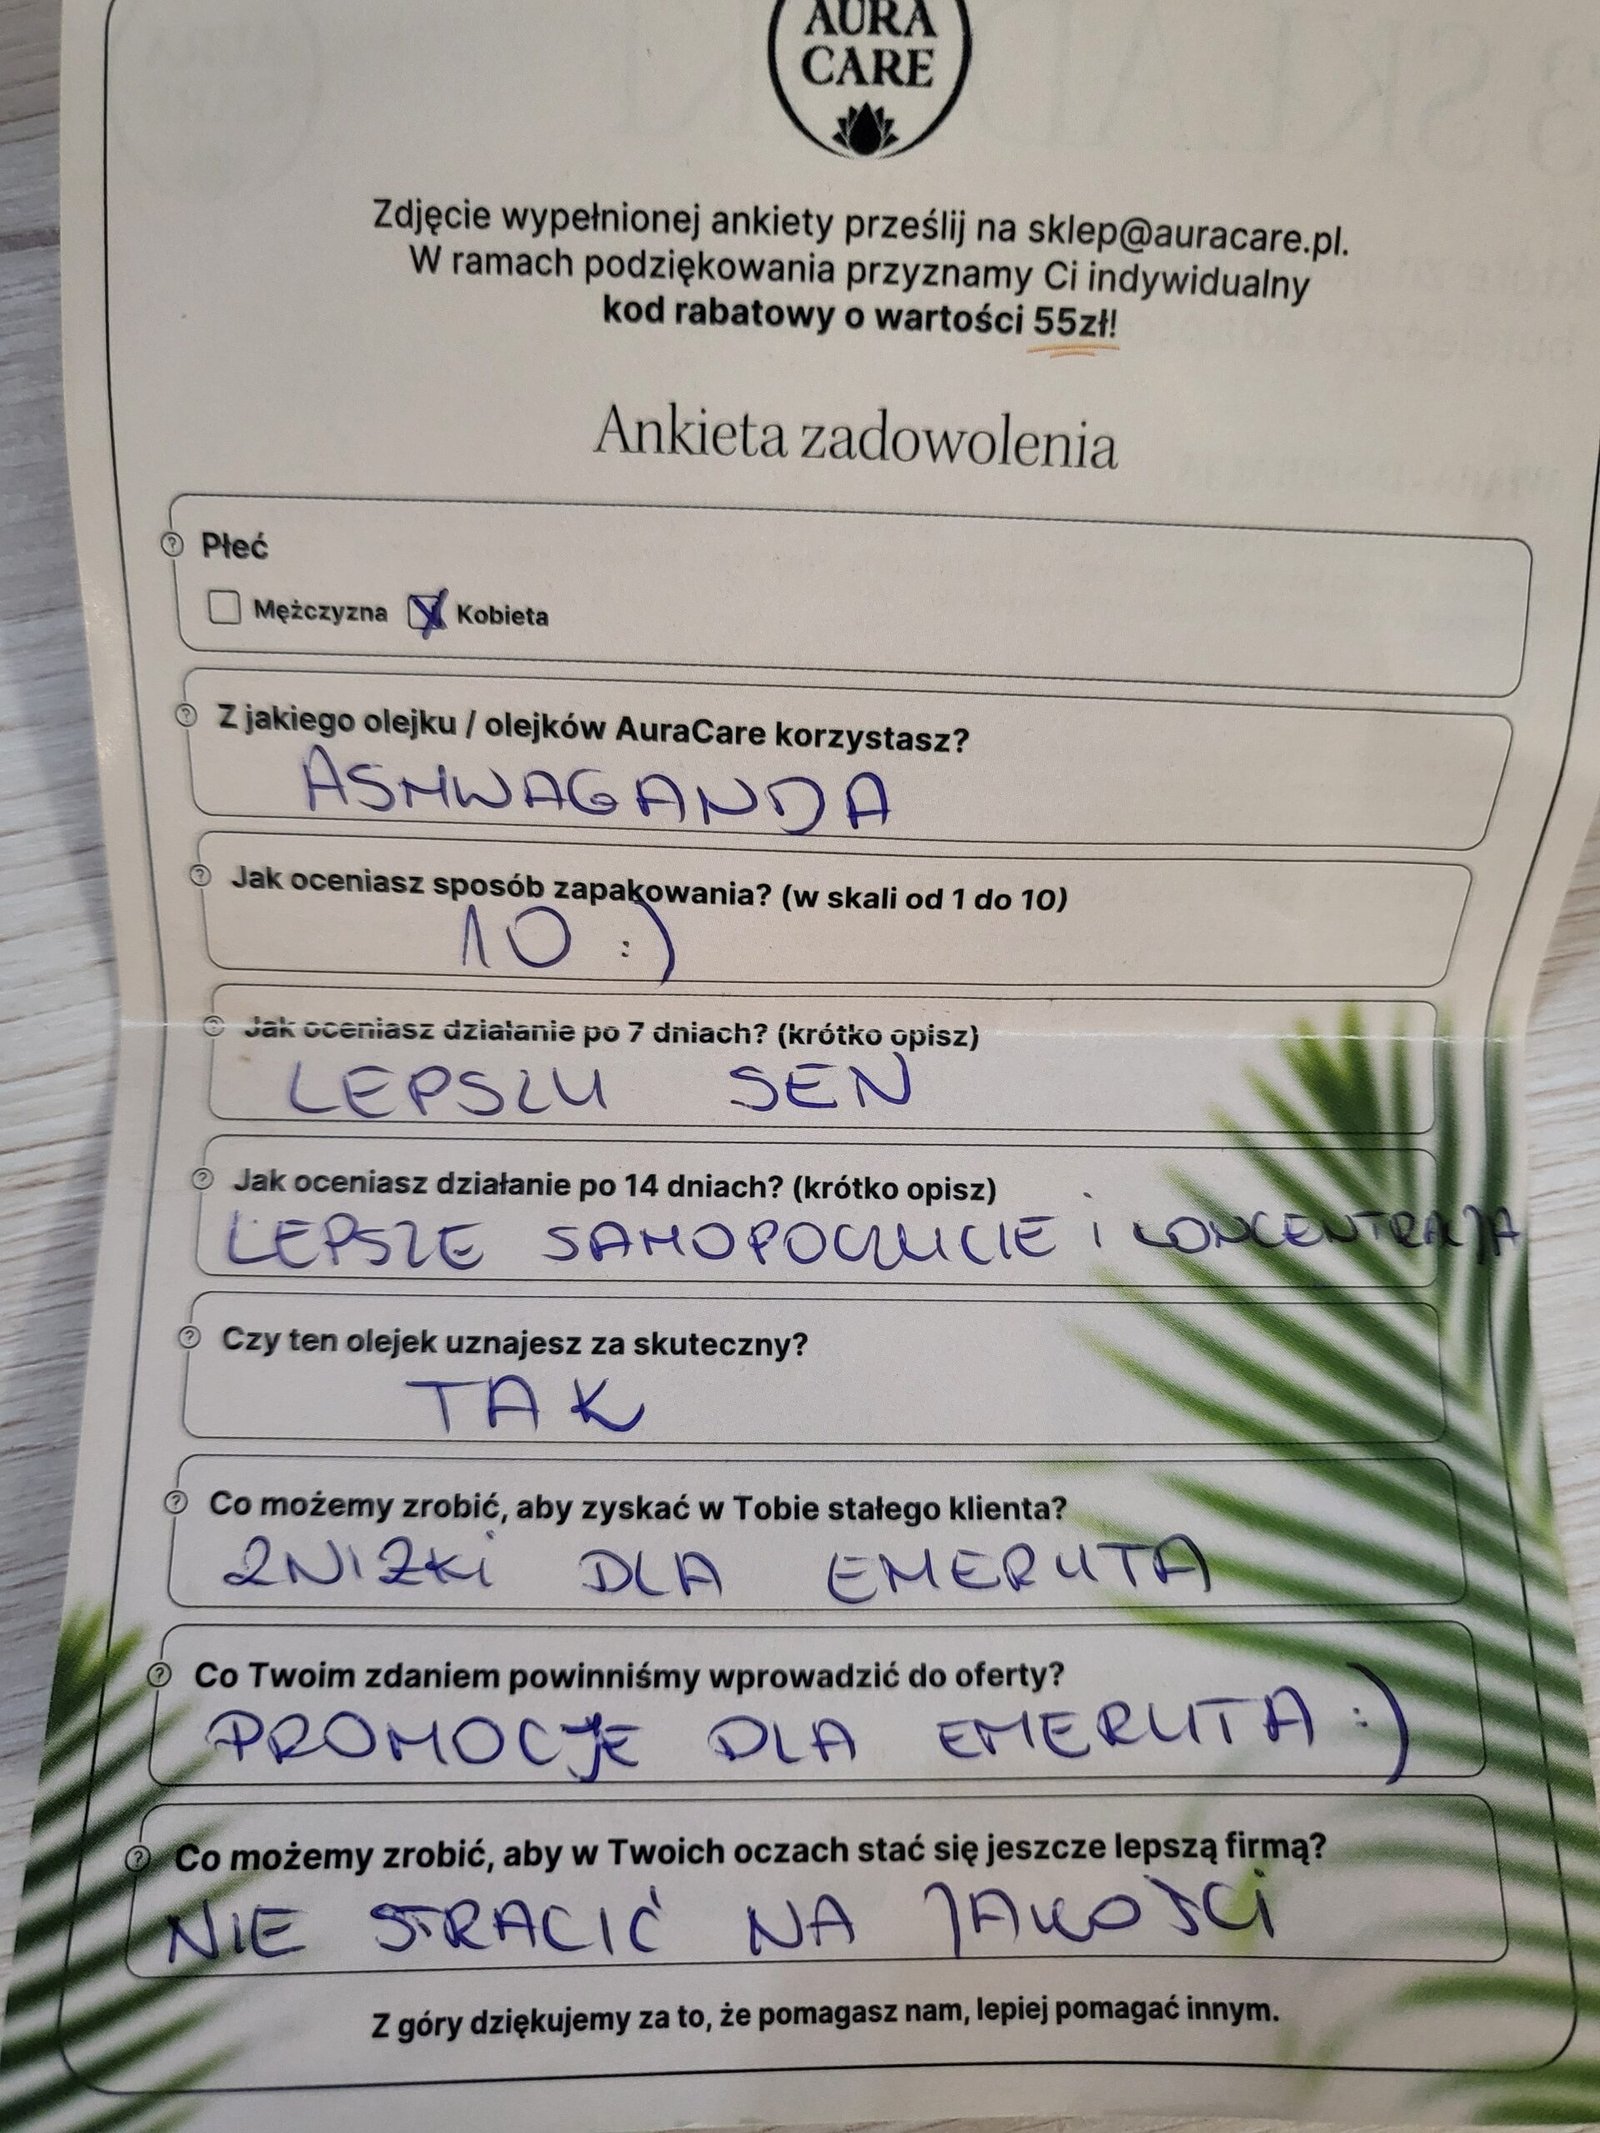 AURA
CARE
Zdjęcie wypełnionej ankiety prześlij na sklep@auracare.pl.
W ramach podziękowania przyznamy Ci indywidualny
kod rabatowy o wartości 55zł!
Ankieta zadowolenia
Płeć
Mężczyzna X Kobieta
Z jakiego olejku / olejków AuraCare korzystasz?
ASHWAGANDA
Jak oceniasz sposób zapakowania? (w skali od 1 do 10)
10 :)
Jak oceniasz działanie po 7 dniach? (krótko opisz)
LEPSZY SEN
Jak oceniasz działanie po 14 dniach? (krótko opisz)
LEPSZE SAMOPOCZUCIE i KONCENTRACJA
Czy ten olejek uznajesz za skuteczny?
TAK
Co możemy zrobić, aby zyskać w Tobie stałego klienta?
ZNIŻKI DLA EMERYTA
Co Twoim zdaniem powinniśmy wprowadzić do oferty?
PROMOCJE DLA EMERYTA :)
Co możemy zrobić, aby w Twoich oczach stać się jeszcze lepszą firmą?
NIE STRACIĆ NA JAKOŚCI
Z góry dziękujemy za to, że pomagasz nam, lepiej pomagać innym.